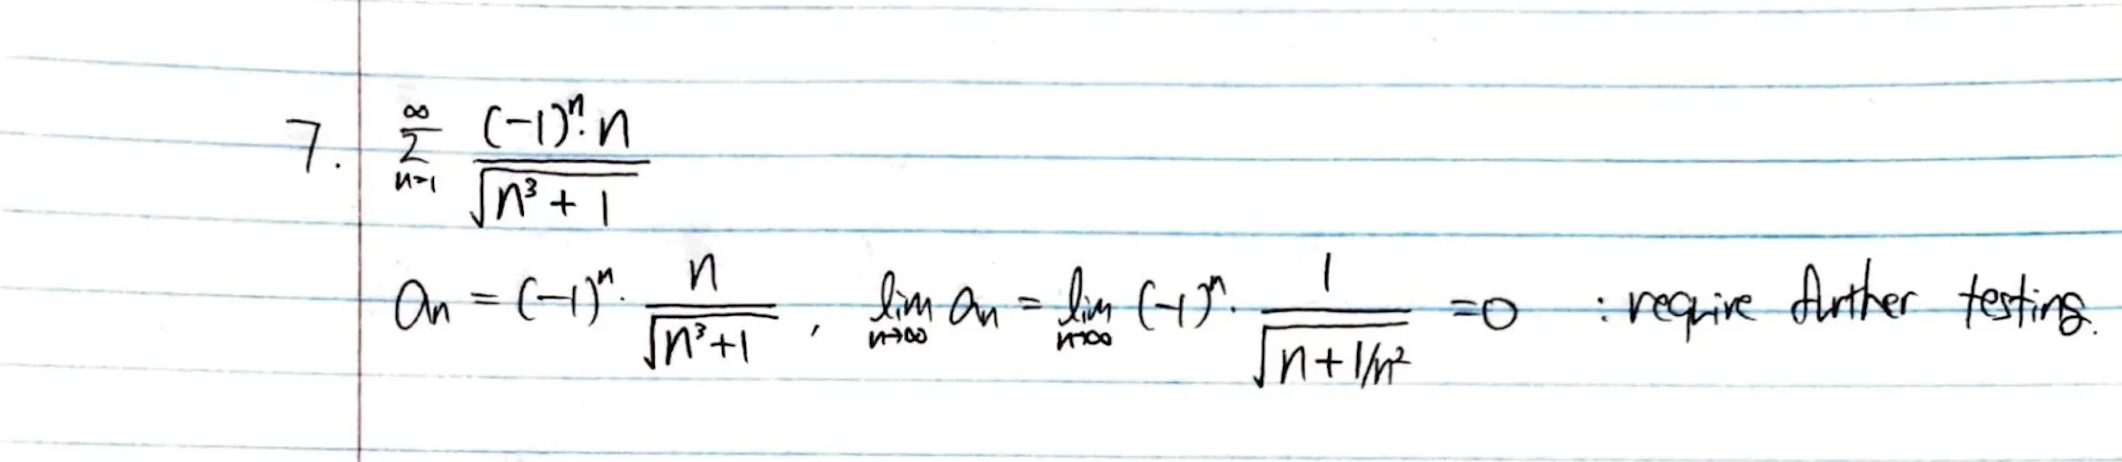 7. ∞ Σ n=1 (-1)ⁿ·n / √(n³ + 1)
an = (-1)ⁿ· n / √(n³+1) , lim n→∞ an = lim n→∞ (-1)ⁿ· 1 / √(n + 1/n²) =0 : require further testing.